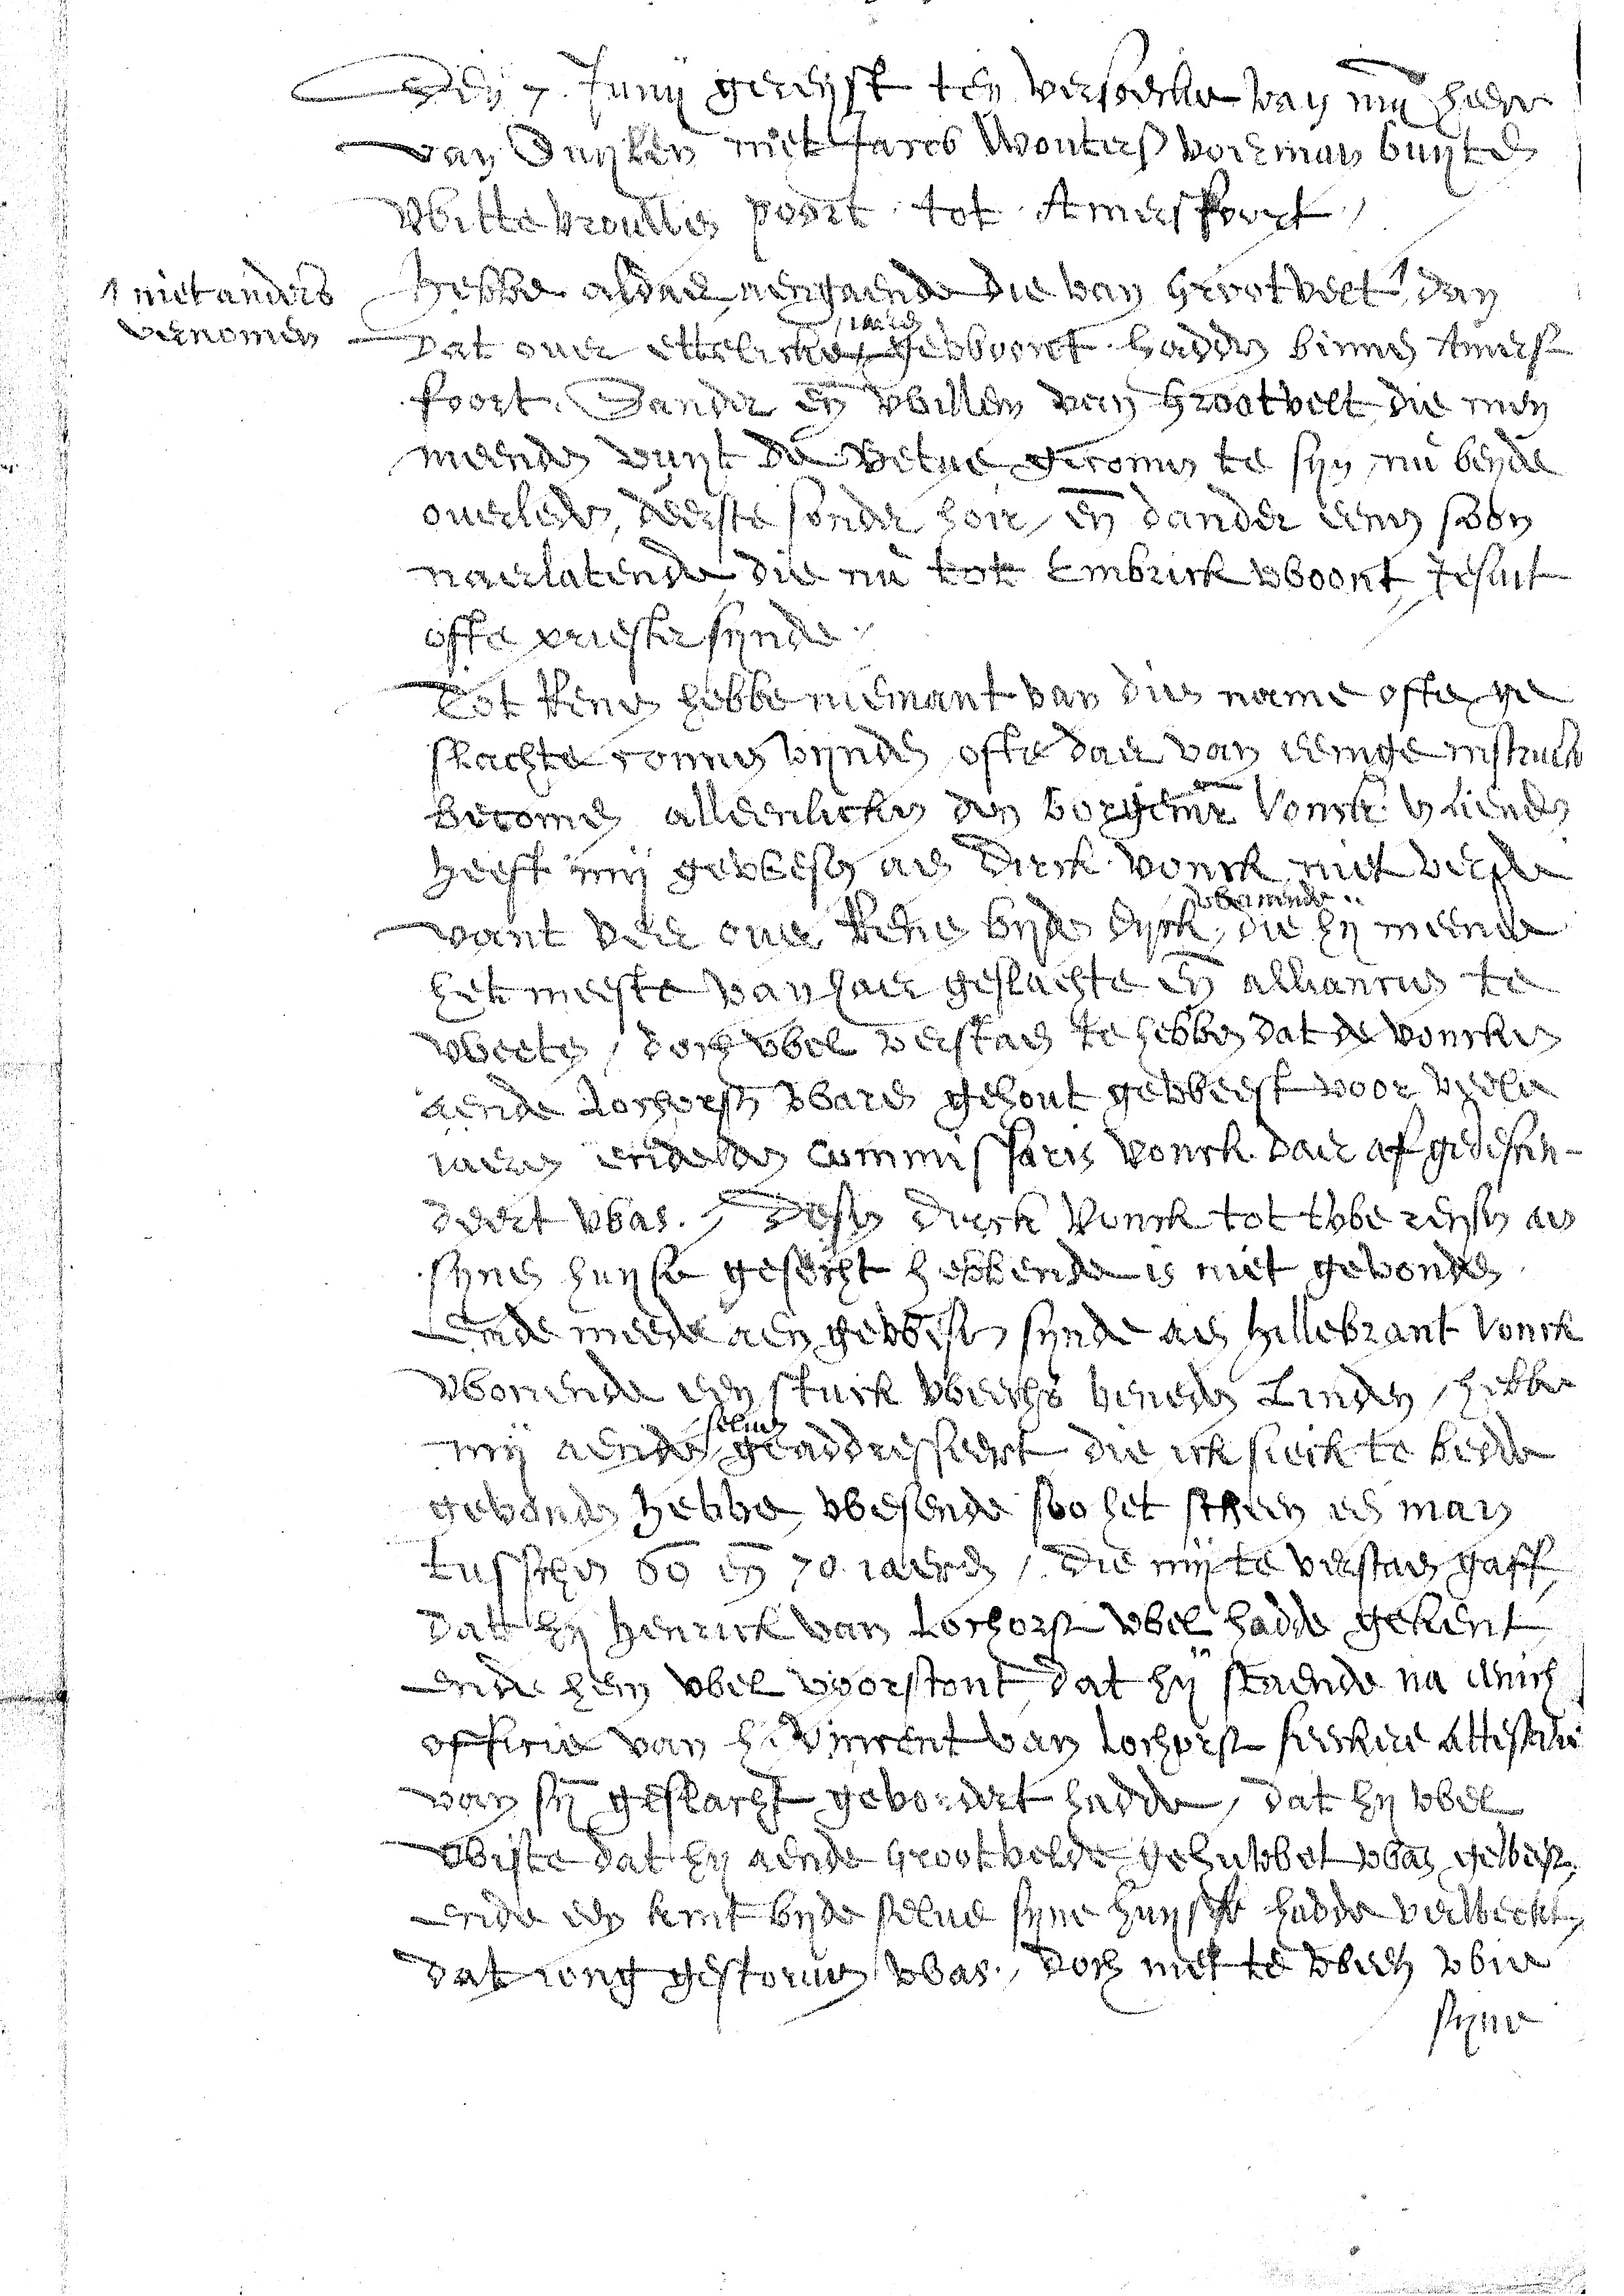 Den 7. Junij gereijst ten versoecke van mijn heer
van Duijken met Jacob Wouterss voerman buijten
Wittevrouwen poort tot Amersfoort /
Hebbe aldaer aengaende die van Grootvelt ↑ dan
↑ niet anders
vernomen
dat over ettelicke jaeren gewoont hadden binnen Amers
foort. Sander en Willem van Grootvelt die men
meende vuijt de Veluwe gecomen te sijn nu beijde
overleden, deerste sonder hoir, en dander eenen soon
naerlatende die nu tot Embrick woont, Jesuit
ofte priester sijnde.
Tot Renen hebbe niemant van dien name ofte ge
slachte connen vijnden ofte daer van eenige instructie
becomen alleenlicken den borgemr Vonck vrienden
heeft mij gewesen aen Dirck Vonck niet verde
van't veer over Renen bijden dijck woenende, die hij meende
het meeste van haer geslachte en alliancien te
weeten, doch wel verstaen te hebben dat de Voncken
aende Lochorsten waren gehout geweest voor veele
iaeren ende den Commissaris Vonck daer af gedescen-
deert was. / Desen Dirck Vonck tot twee reijsen aen
sijnen huijse gesocht hebbende is niet gevonden
Ende mede aengewesen sijnde aen Hillebrant Vonck
wonende een stuck weechs beneden Linden, hebbe
mij aenden selven geaddresseert die ick sieck te bedde
gevonden hebbe, wesende soo het scheen een man
tusschen 60 en 70 iaeren /. Die mij te verstaen gaff
dat hij Henrick van Lochorst wel hadde gekent
ende hem wel voorstont dat hij staende na eenich
officie van hr Vincent van Lochorst seeckere attestatie
van sijn geslacht gevordert hadde, dat hij wel
wiste dat hij aende Grootvelde gehuwet was geweest,
ende een kint bijde selve sijne huijsfr hadde verweckt,
dat iong gestorven was., doch niet te weten wie
sijne